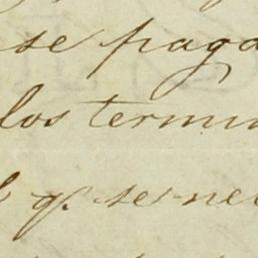 se paga
los termin
q. se ne